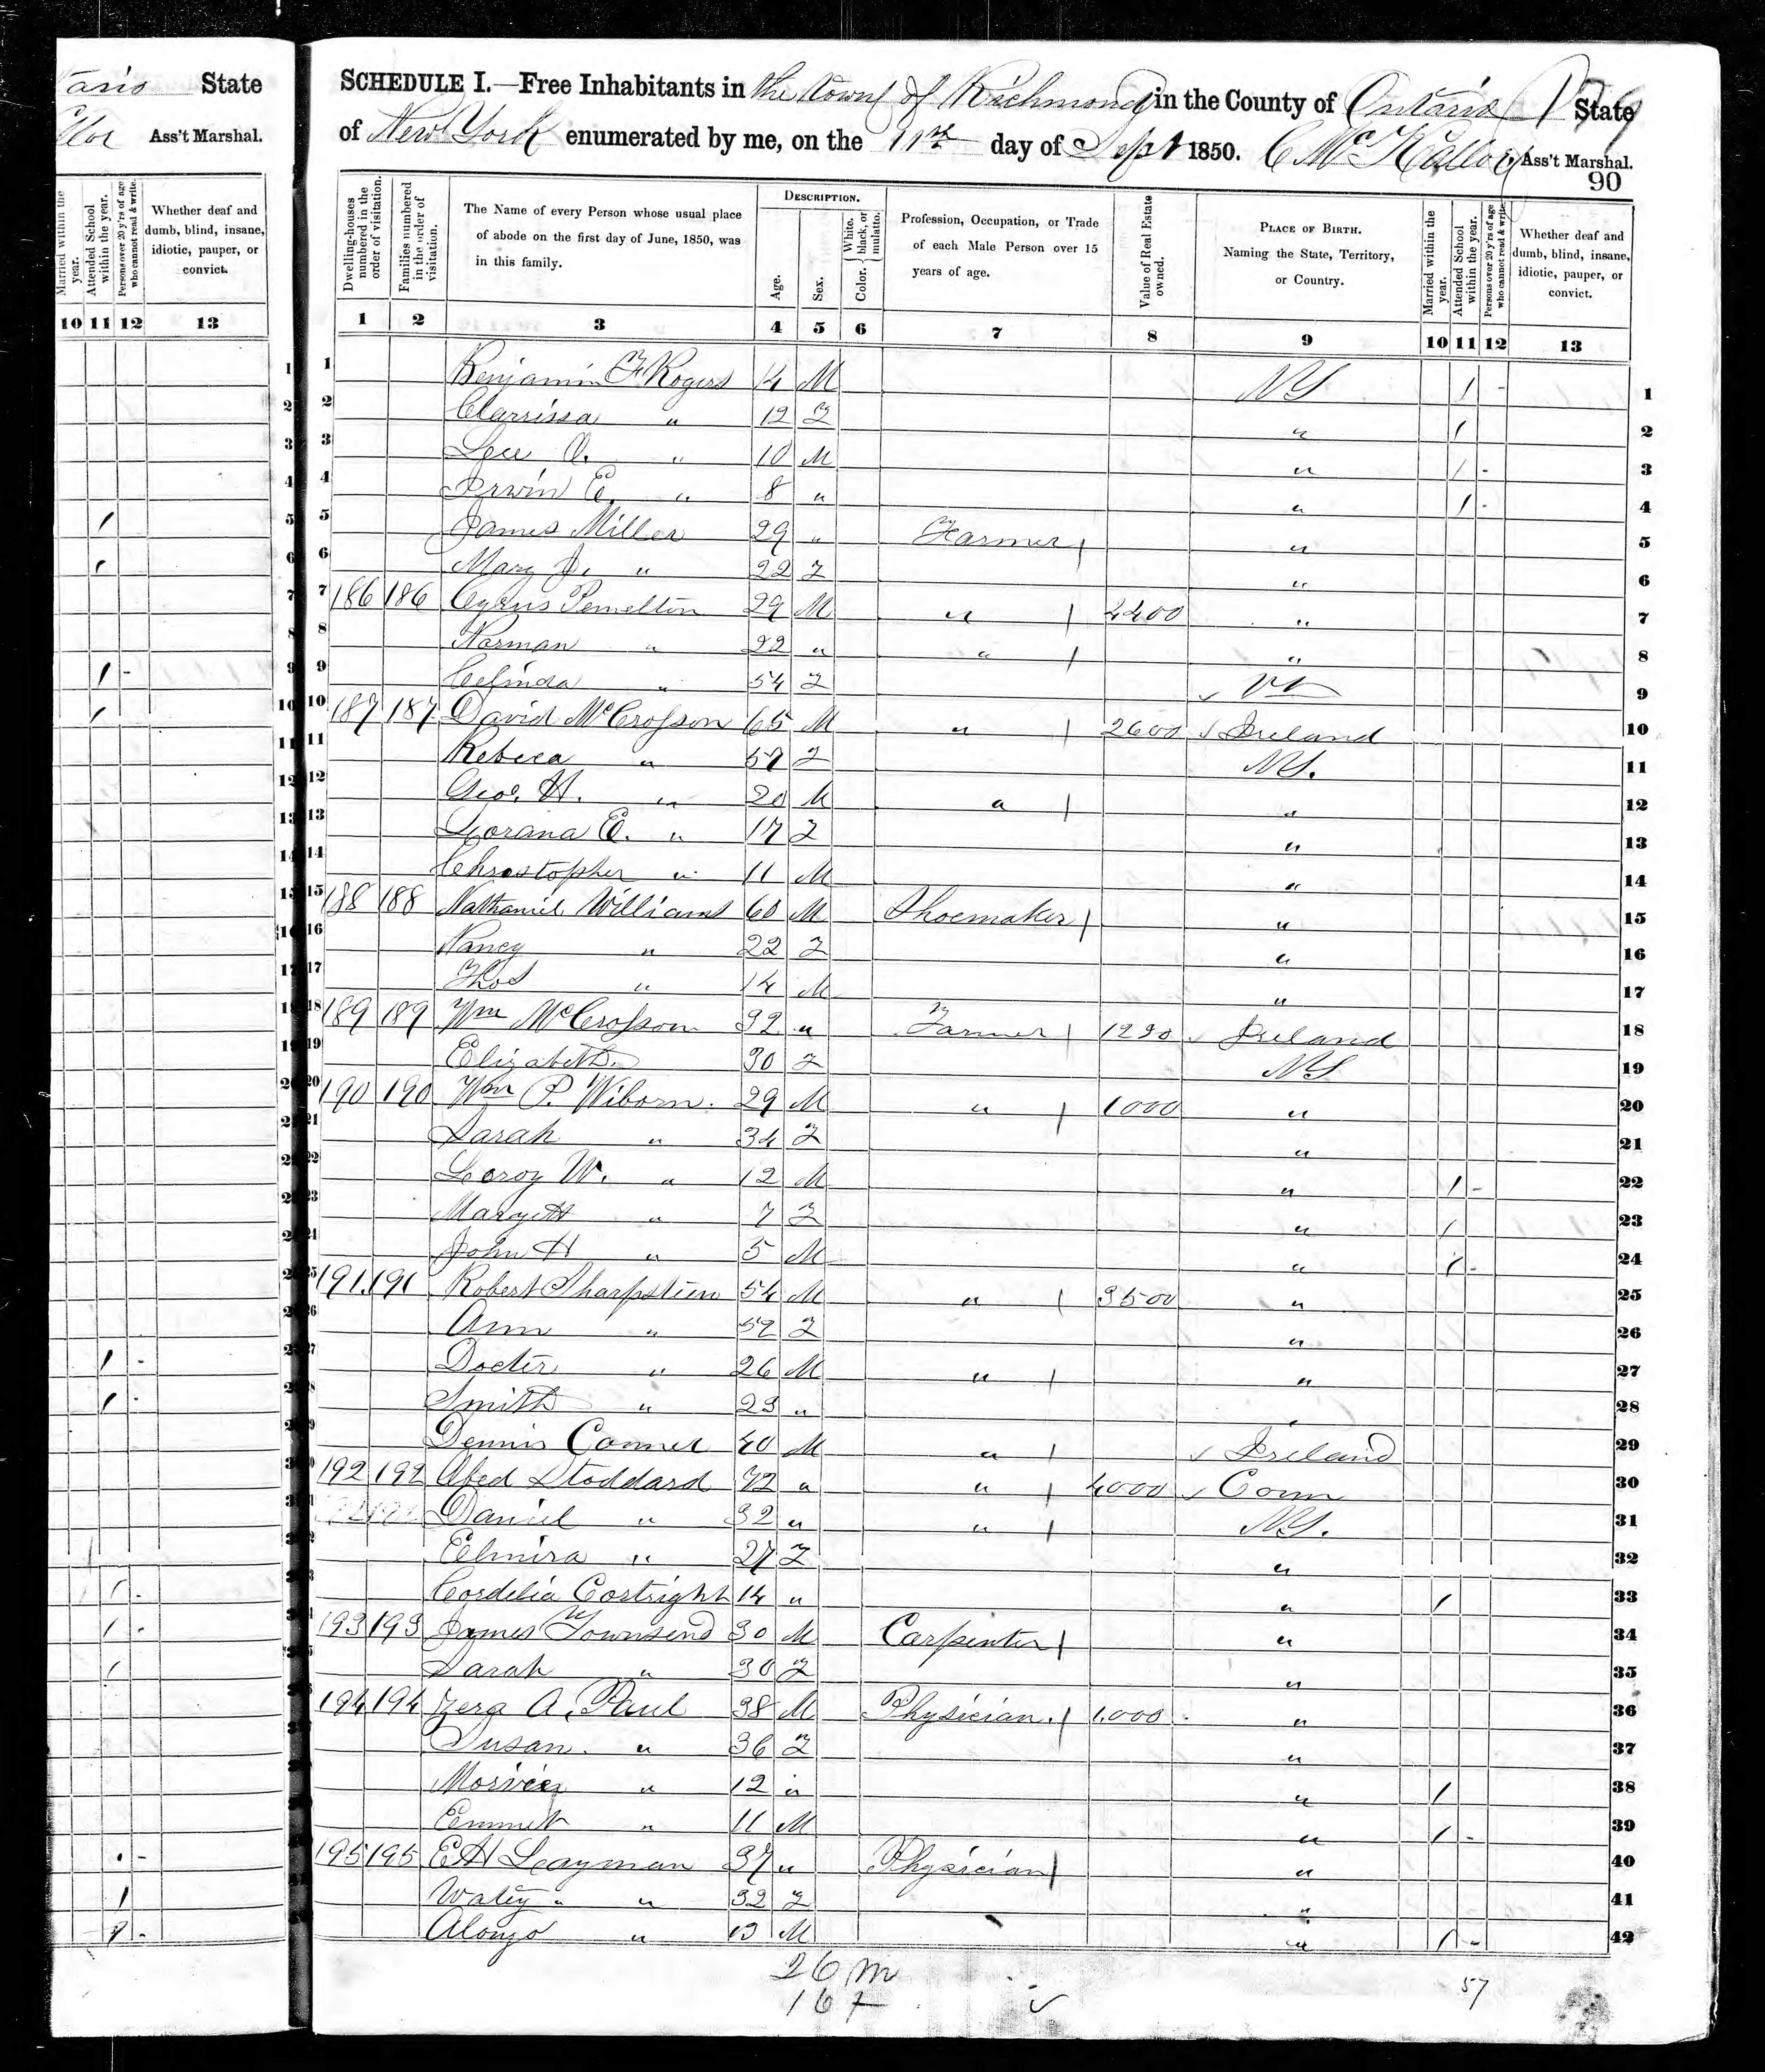 taris State
Ass't Marshal.
Married within the year.
Attended School within the year.
Persons over 20 y'rs of age who cannot read & write.
Whether deaf and dumb, blind, insane, idiotic, pauper, or convict.
10 11 12 13
SCHEDULE I.—Free Inhabitants in the town of Richmond in the County of Ontario State
of New York enumerated by me, on the 11th day of Sept 1850. Ass't Marshal.
90
Dwelling-houses numbered in the order of visitation.
Families numbered in the order of visitation.
The Name of every Person whose usual place of abode on the first day of June, 1850, was in this family.
DESCRIPTION.
Age.
Sex.
Color. { White, black, or mulatto.
Profession, Occupation, or Trade of each Male Person over 15 years of age.
Value of Real Estate owned.
PLACE OF BIRTH. Naming the State, Territory, or Country.
Married within the year.
Attended School within the year.
Persons over 20 y'rs of age who cannot read & write.
Whether deaf and dumb, blind, insane, idiotic, pauper, or convict.
1 2 3 4 5 6 7 8 9 10 11 12 13
1 Benjamin F Rogers 14 M NY 1 - 1
2 Clarrissa " 12 F " 1 2
3 O. " 10 M " 1 - 3
4 Erwin E. " 8 " " 1 - 4
5 James Miller 29 " Farmer " 5
6 Mary J. " 22 F " 6
7 186 186 Cyrus Pemelton 29 M " 2400 " 7
8 Norman " 22 " " " 8
9 Celinda " 54 F Vt 9
10 187 187 David McCrosson 65 M " 2600 Ireland 10
11 Rebeca " 57 F NY. 11
12 Geo. H. " 20 M " " 12
13 Lorana E. " 17 F " 13
14 Christopher " 11 M " 14
15 188 188 Nathaniel Williams 60 M Shoemaker " 15
16 Nancy " 22 F " 16
17 Thos " 14 M " 17
18 189 189 Wm McCrosson 32 " Farmer Ireland 18
19 Elizabeth 30 F NY 19
20 190 190 Wm P. Wiborn. 29 M " 1000 " 20
21 Sarah " 34 F " 21
22 Leroy W. " 12 M " 1 - 22
23 Mary " 7 F " 1 23
24 John H " 5 M " 1 - 24
25 191 191 Robert Sharpstien 54 M " 3500 " 25
26 Ann " 52 F " 26
27 Docter " 26 M " " 27
28 Smith " 23 " " 28
29 Dennis Conner 40 M " Ireland 29
30 192 192 Abed Stoddard 72 " " 4000 Conn 30
31 Daniel " 32 " " NY. 31
32 Elmira " 27 F " 32
33 Cordelia Cortright 14 " " 1 33
34 193 193 James Townsend 30 M Carpenter " 34
35 Sarah " 30 F " 35
36 194 194 Zera A. Paul 38 M Physician. 1000 " 36
37 Susan. " 36 F " 37
38 " 12 " " 1 38
39 Emmet " 11 M " 1 - 39
40 195 195 E H Layman 37 " Physician " 40
41 " 32 F " 41
42 Alonzo " 13 M " 1 - 42
26 m
16 f
57